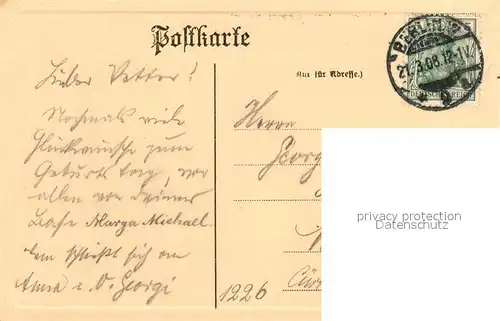 Postkarte
Nur für Adresse.)
BERLIN
21.3.08.12-1V.
DEUTSCHES REICH
Lieber Vetter!
Nochmals viele
Glückwünsche zum
Geburtstag, vor
allen von Deiner
Base Marga Michael.
Dem schließt sich an
Anna u. O. Georgi
Herrn
Georg
1226
privacy protection
Datenschutz